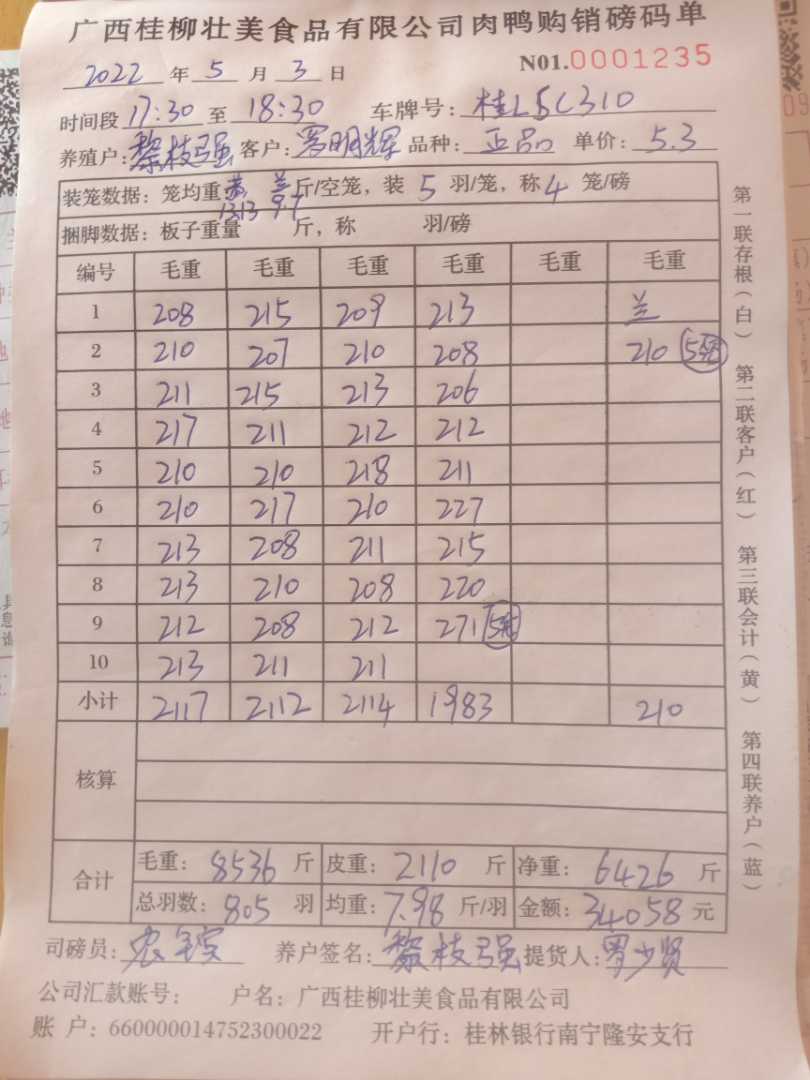 广西桂柳壮美食品有限公司肉鸭购销磅码单
2022 年 5 月 3 日 N01.0001235
时间段 17:30 至 18:30 车牌号: 桂L5C310
养殖户: 黎枝强 客户: 罗明辉 品种: 正品 单价: 5.3
装笼数据: 笼均重 兰 斤/空笼, 装 5 羽/笼, 称 4 笼/磅
1313 9.7
捆脚数据: 板子重量 斤, 称 羽/磅
编号 毛重 毛重 毛重 毛重 毛重 毛重
1 208 215 209 213 兰
2 210 207 210 208 210
3 211 215 213 206
4 217 211 212 212
5 210 210 218 211
6 210 217 210 227
7 213 208 211 215
8 213 210 208 220
9 212 208 212 271
10 213 211 211
小计 2117 2112 2114 1983 210
核算
合计 毛重: 8536 斤 皮重: 2110 斤 净重: 6426 斤
总羽数: 805 羽 均重: 7.98 斤/羽 金额: 34058 元
司磅员: 养户签名: 黎枝强 提货人: 罗少贤
公司汇款账号: 户名: 广西桂柳壮美食品有限公司
账 户: 660000014752300022 开户行: 桂林银行南宁隆安支行
第一联存根(白) 第二联客户(红) 第三联会计(黄) 第四联养户(蓝)